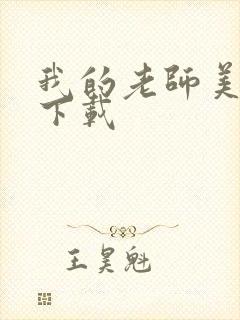 我的老師美
下載
王昊魁